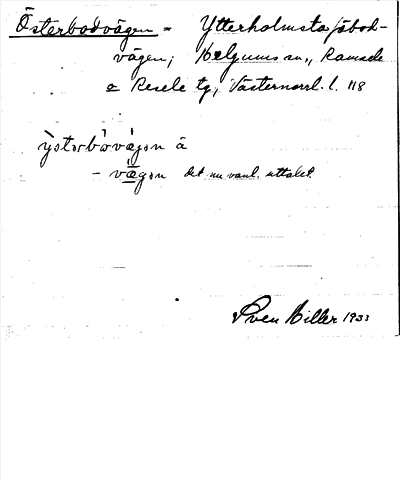 Österbodvägen = Ytterholmsta fäbod-
vägen, Helgums sn., Ramsele
o Resele tg, Västernorrl. l. 118
ỳstərbòvägən ä
- vägən det nu vanl. uttalet.
Sven Hiller 1933